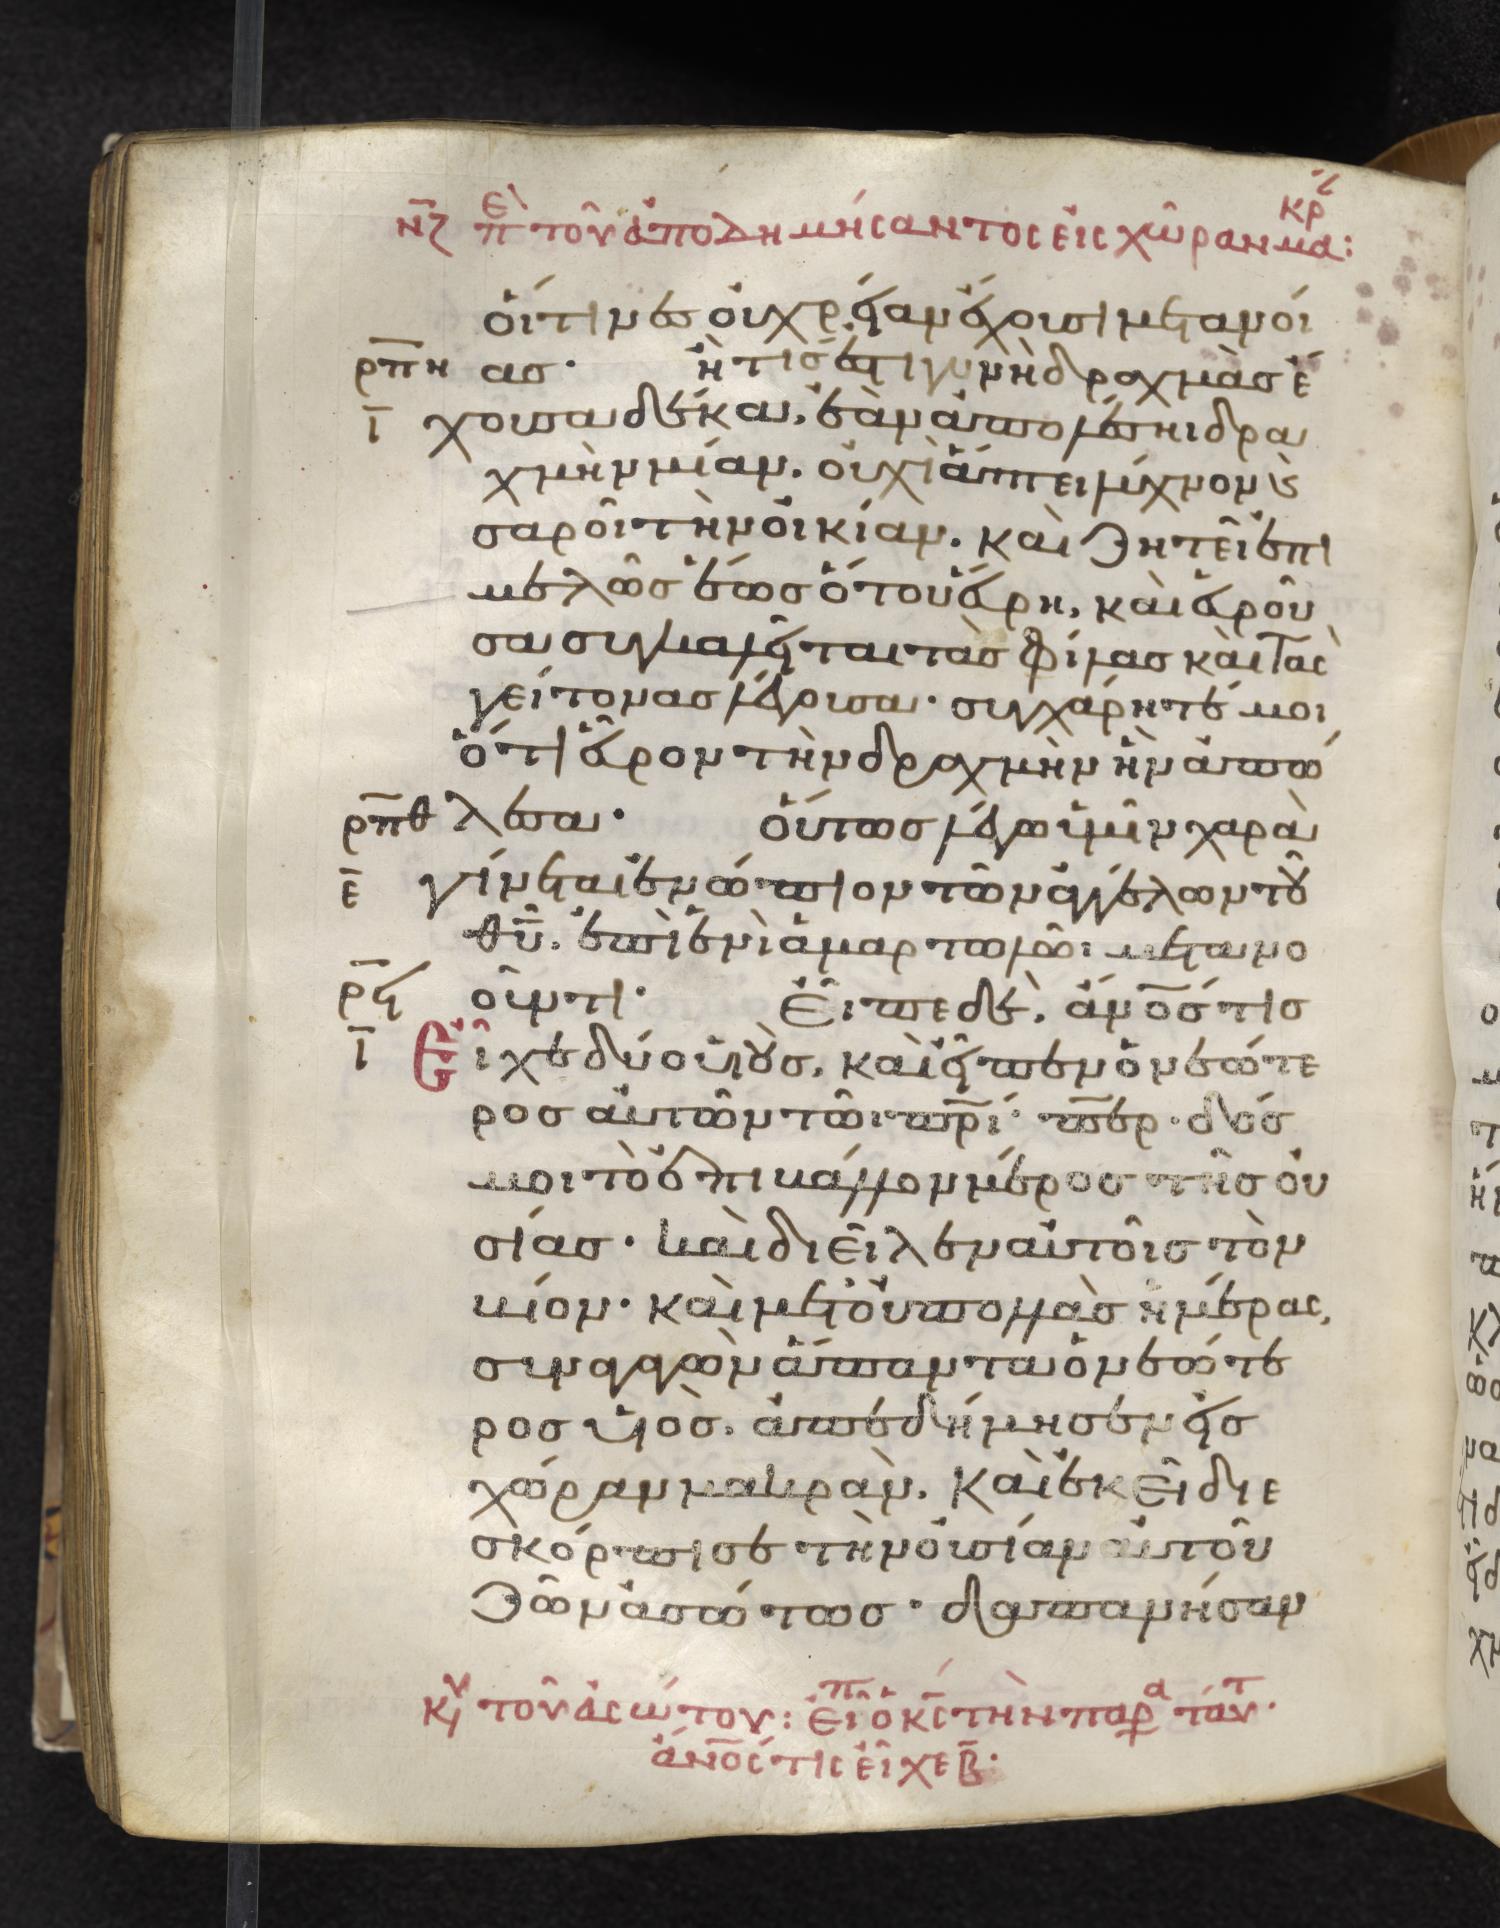 νζ πε τοῦ ἀποδημήσαντος εἰς χώραν μακρ:
οἵτινες οὐ χρείαν ἔχουσι μετανοί
ρπη ας· ἢ τίς ἐστι γυνὴ δραχμὰς ἔ
ι χουσα δέκα, ἐὰν ἀπολέσηι δρα
χμὴν μίαν, οὐχὶ ἅπτει λύχνον κ(αὶ)
σαροῖ τὴν οἰκίαν, καὶ ζητεῖ ἐπι
μελῶς ἕως ὅτου εὕρη, καὶ εὑροῦ
σα συγκαλεῖται τὰς φίλας καὶ τὰς
γείτονας λέγουσα· συγχάρητέ μοι
ὅτι εὗρον τὴν δραχμὴν ἣν ἀπώ
ρπθ λεσα· οὕτως λέγω ὑμῖν χαρὰ
ε γίνεται ἐνώπιον τῶν ἀγγέλων τοῦ
θυ, ἐπὶ ἑνὶ ἁμαρτωλῶι μετανο
ρϟ οῦντι· Εἶπε δέ, ἄνος τις
ι Εἶχε δύο υἱοὺς, καὶ εἶπεν ὁ νεώτε
ρος αὐτῶν τῶι πρι· περ· δός
μοι τὸ ἐπιβάλλον μέρος τῆς οὐ
σίας· καὶ διεῖλεν αὐτοῖς τὸν
βίον· καὶ μετ' οὐ πολλὰς ἡμέρας,
συναγαγὼν ἅπαντα ὁ νεώτε
ρος υἱὸς, ἀπεδήμησεν εἰς
χώραν μακρὰν, καὶ ἐκεῖ διε
σκόρπισε τὴν οὐσίαν αὐτοῦ
ζῶν ἀσώτως· δαπανήσαν
κυ τοῦ ἀσώτου: εἶπ ὁ κς τὴν παρα ταύτ·
ἄνος τις εἶχε β·